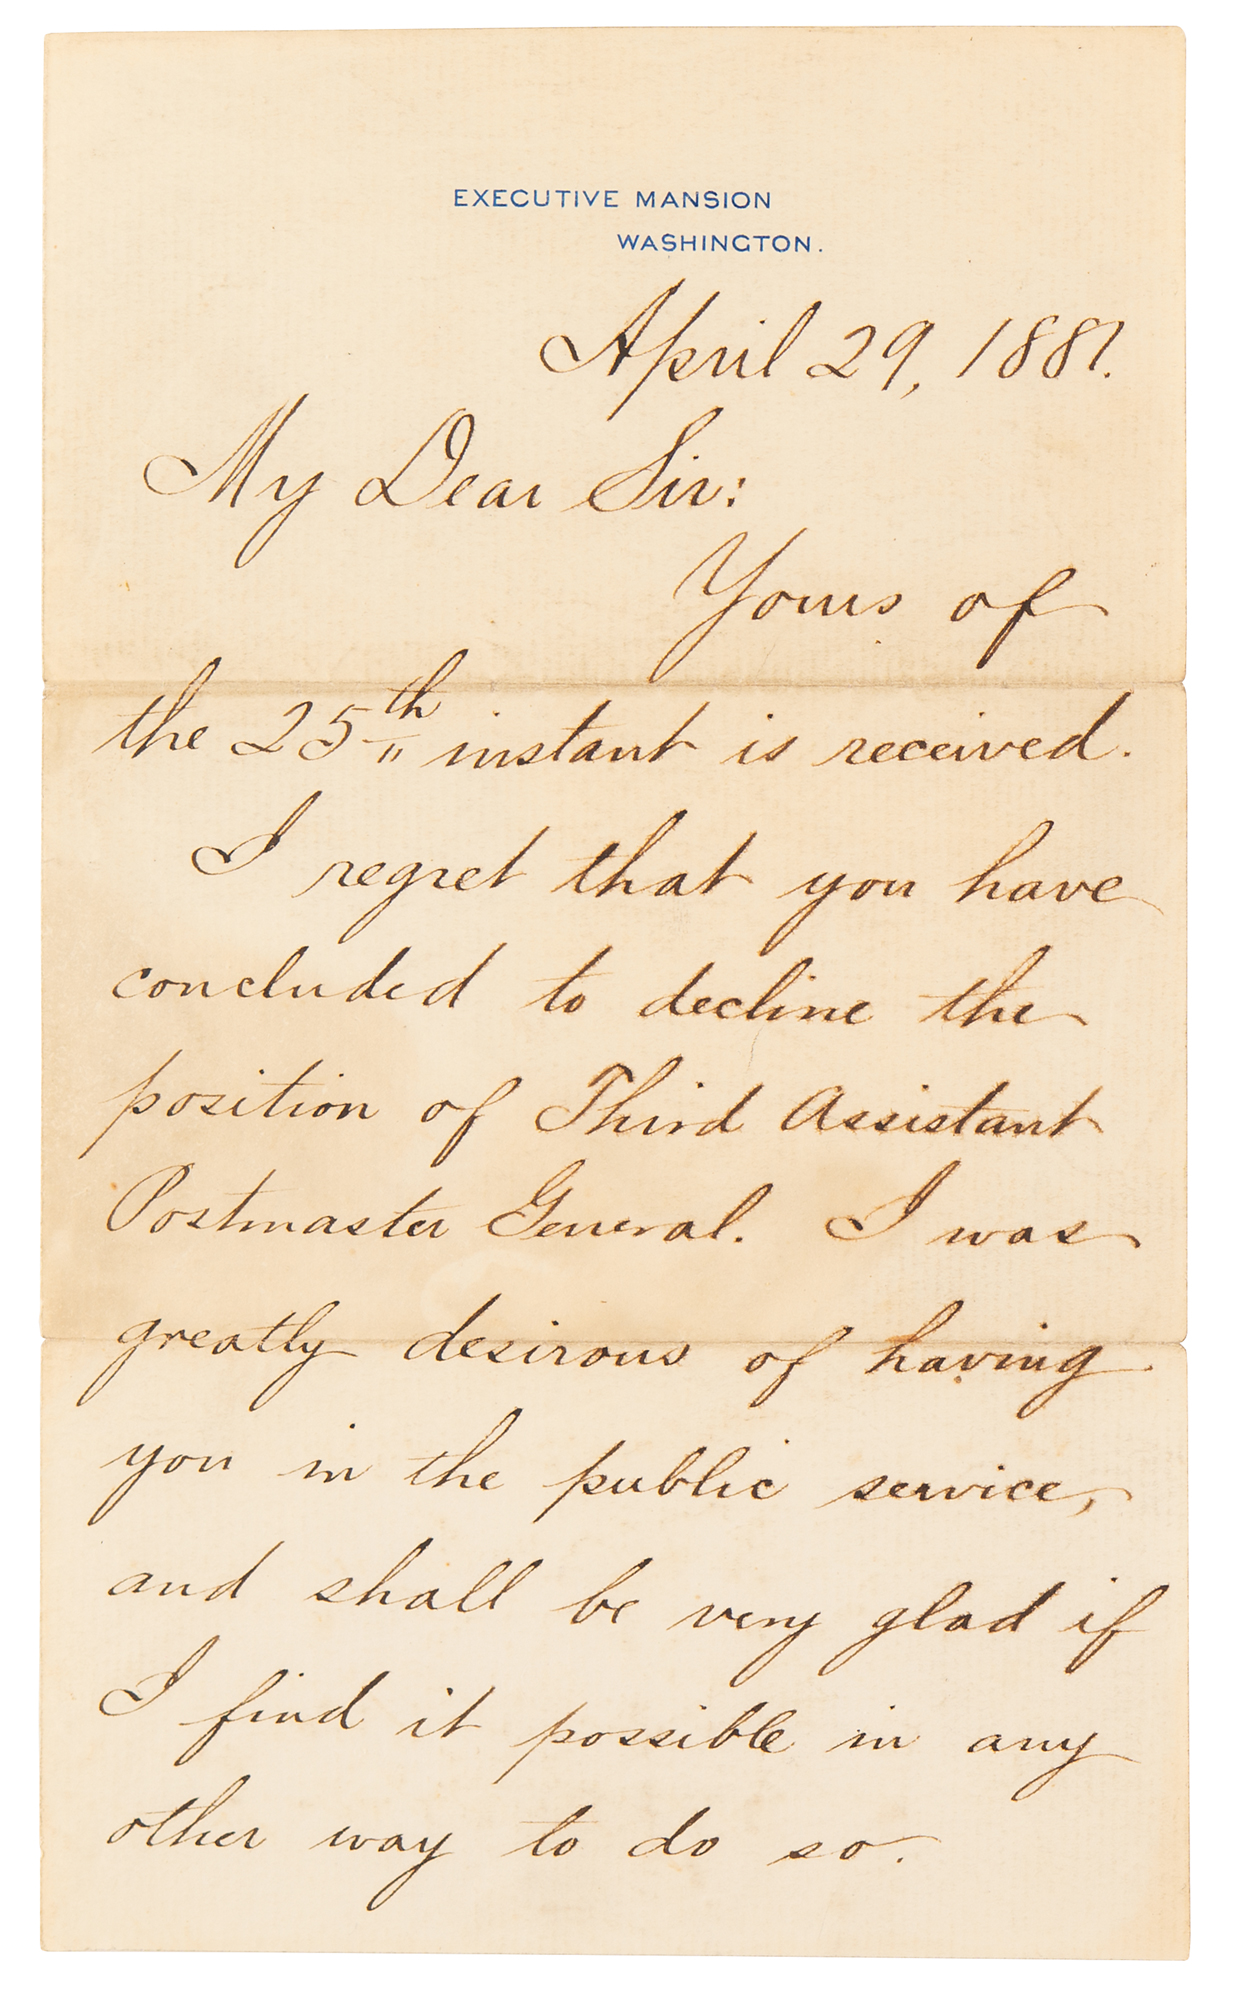 EXECUTIVE MANSION
WASHINGTON.
April 29, 1881.
My Dear Sir:
Yours of
the 25th instant is received.
I regret that you have
concluded to decline the
position of Third Assistant
Postmaster General. I was
greatly desirous of having
you in the public service,
and shall be very glad if
I find it possible in any
other way to do so.